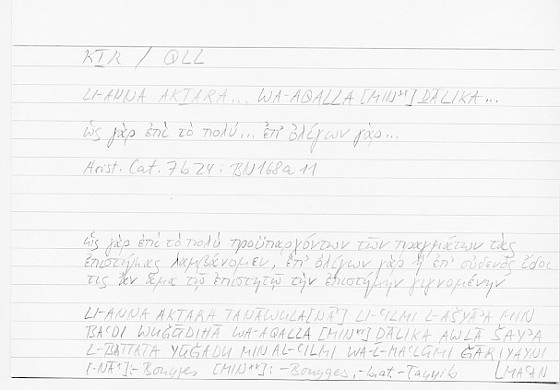 KṮR / QLL
LI-ANNA AKṮARA... WA-AQALLA [MIN] ḎĀLIKA...
ὡς γὰρ ἐπὶ τὸ πολύ... ἐπ' ὀλίγων γὰρ...
Arist. Cat. 7b24: BN168a11
ὡς γὰρ ἐπὶ τὸ πολὺ προϋπαρχόντων τῶν πραγμάτων τὰς
ἐπιστήμας λαμβάνομεν, ἐπ' ὀλίγων γὰρ ἢ ἐπ' οὐδενὸς ἴδοι
τις ἂν ἅμα τῷ ἐπιστητῷ τὴν ἐπιστήμην γιγνομένην
LI-ANNA AKṮARA TANĀWULA[NĀ] LI-ʿILMI L-AŠYĀʾA MIN
BAʿDI WUǦŪDIHĀ WA-AQALLA [MIN] ḎĀLIKA AWLĀ ŠAYʾA
L-BATTATA YŪǦADU MIN AL-ʿILMI WA-L-MAʿLŪMI ǦARIYAYNI
[MAʿAN
-NĀ]: -Bouyges [MIN]: -Bouyges,